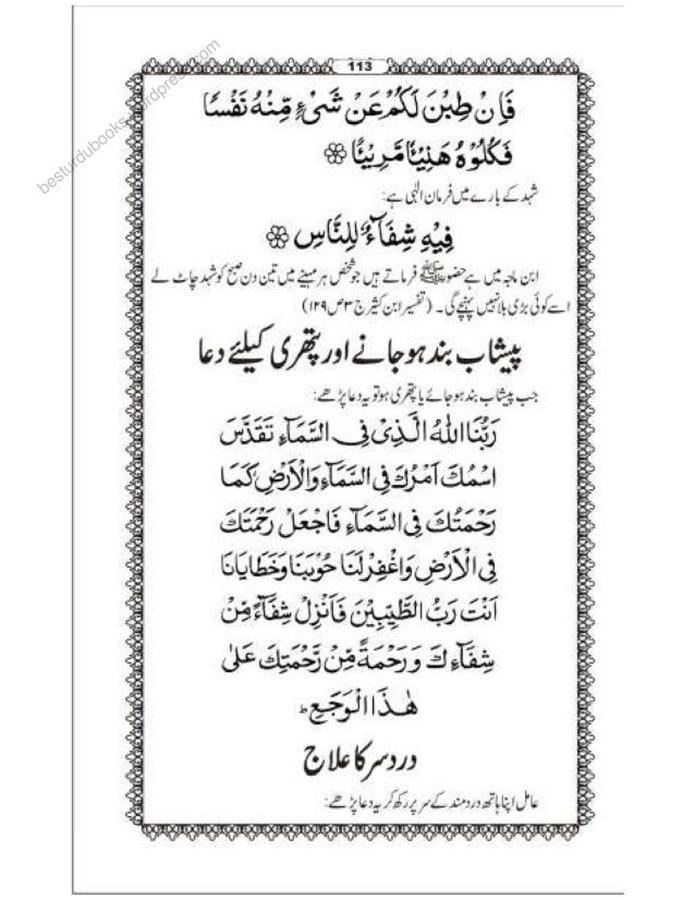 besturdubooks.wordpress.com
113
فَاِنْ طِبْنَ لَكُمْ عَنْ شَیْءٍ مِّنْهُ نَفْسًا
فَكُلُوْهُ هَنِیْٓئًا مَّرِیْٓئًا
شہد کے بارے میں فرمان الٰہی ہے:
فِیْهِ شِفَآءٌ لِّلنَّاسِ
ابن ماجہ میں ہے حضور ﷺ فرماتے ہیں جو شخص ہر مہینے میں تین دن صبح کو شہد چاٹ لے
اسے کوئی بڑی بلا نہیں پہنچے گی۔ (تفسیر ابن کثیر ج ۳ ص ۱۲۹)
پیشاب بند ہو جانے اور پتھری کیلئے دعا
جب پیشاب بند ہو جائے یا پتھری ہو تو یہ دعا پڑھے:
رَبُّنَا اللهُ الَّذِیْ فِی السَّمَآءِ تَقَدَّسَ
اسْمُكَ اَمْرُكَ فِی السَّمَآءِ وَالْاَرْضِ كَمَا
رَحْمَتُكَ فِی السَّمَآءِ فَاجْعَلْ رَحْمَتَكَ
فِی الْاَرْضِ وَاغْفِرْلَنَا حُوْبَنَا وَخَطَایَانَا
اَنْتَ رَبُّ الطَّیِّبِیْنَ فَاَنْزِلْ شِفَآءً مِّنْ
شِفَآءِكَ وَ رَحْمَةً مِّنْ رَّحْمَتِكَ عَلٰی
هٰذَا الْوَجَعِ ؕ
درد سر کا علاج
عامل اپنا ہاتھ درد مند کے سر پر رکھ کر یہ دعا پڑھے: